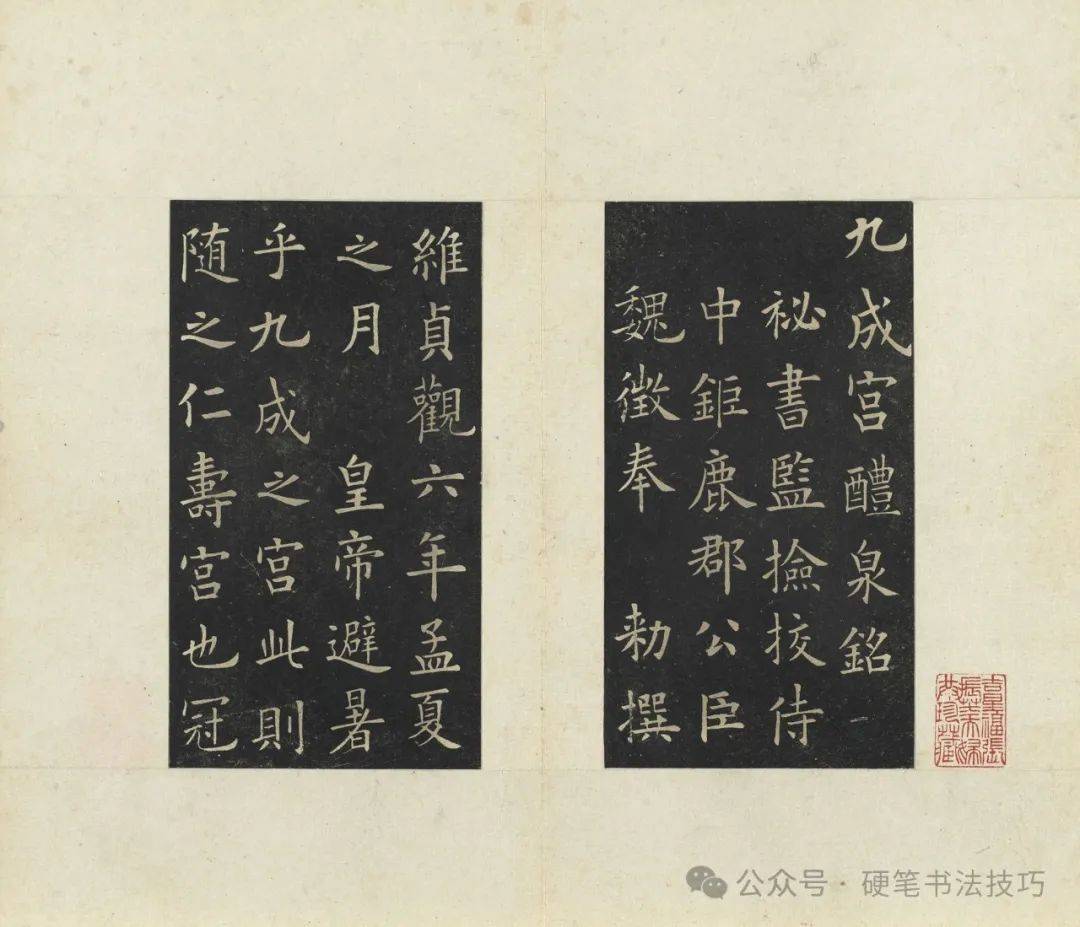 九成宫醴泉銘
祕書監撿挍侍
中鉅鹿郡公臣
魏徵奉 勑撰
維貞觀六年孟夏
之月 皇帝避暑
乎九成之宫此則
随之仁壽宫也冠
公众号 · 硬笔书法技巧